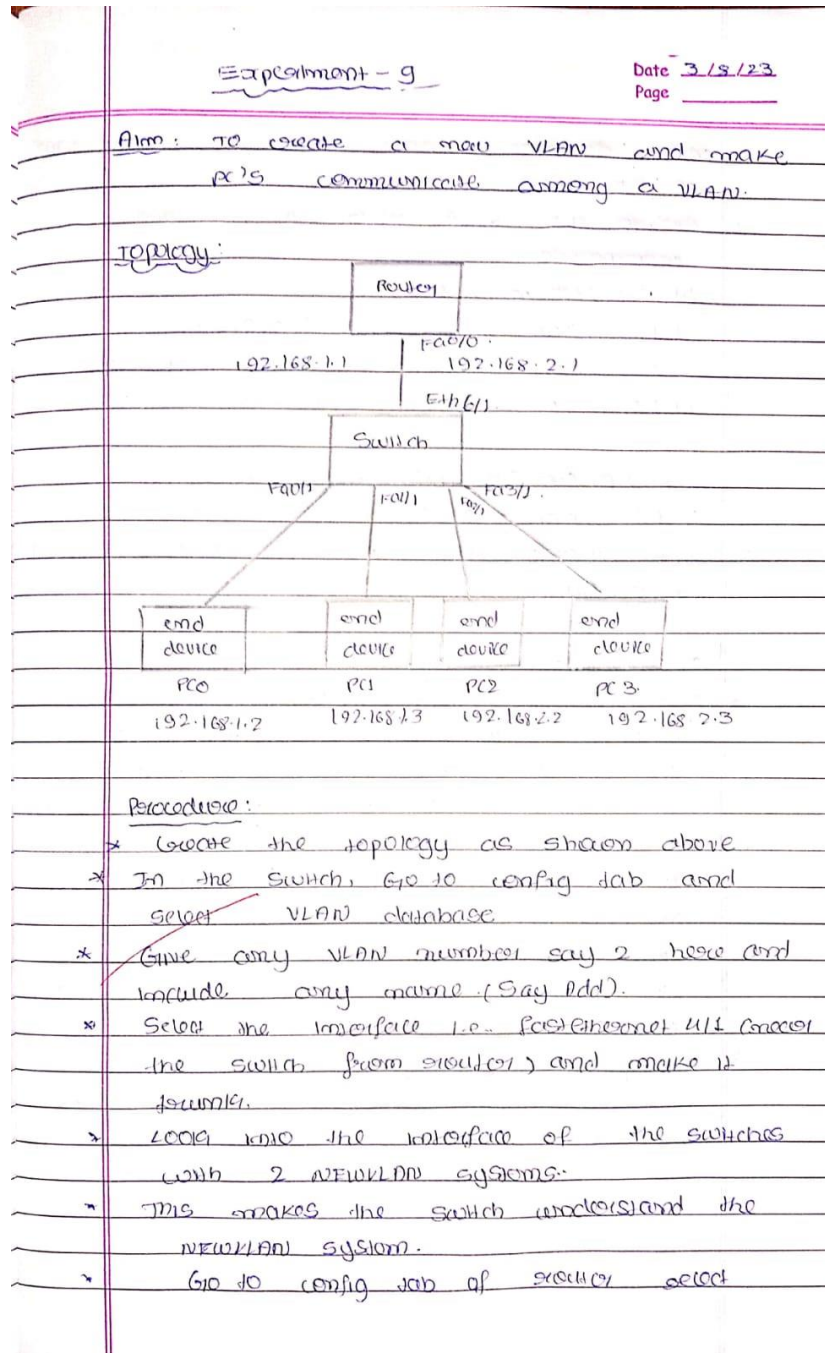 Experiment - 9
Date 3/8/23
Page
Aim: To create a new VLAN and make
PC's communicate among a VLAN.
Topology:
Router
Fa0/0.
192.168.1.1 192.168.2.1
Eth 6/1
Switch
Fa0/1 Fa1/1 Fa2/1 Fa3/1.
end end end end
device device device device
PC0 PC1 PC2 PC3.
192.168.1.2 192.168.1.3 192.168.2.2 192.168.2.3
Procedure:
* Create the topology as shown above
* In the switch, Go to config tab and
select VLAN database
* Give any VLAN number say 2 here and
include any name. (Say Add).
* Select the interface i.e. fastEthernet 4/1 (
the switch from router) and make it
trunk.
* Look into the interface of the switches
with 2 NEWVLAN systems.
* This makes the switch understand the
NEWVLAN system.
* Go to config tab of router select